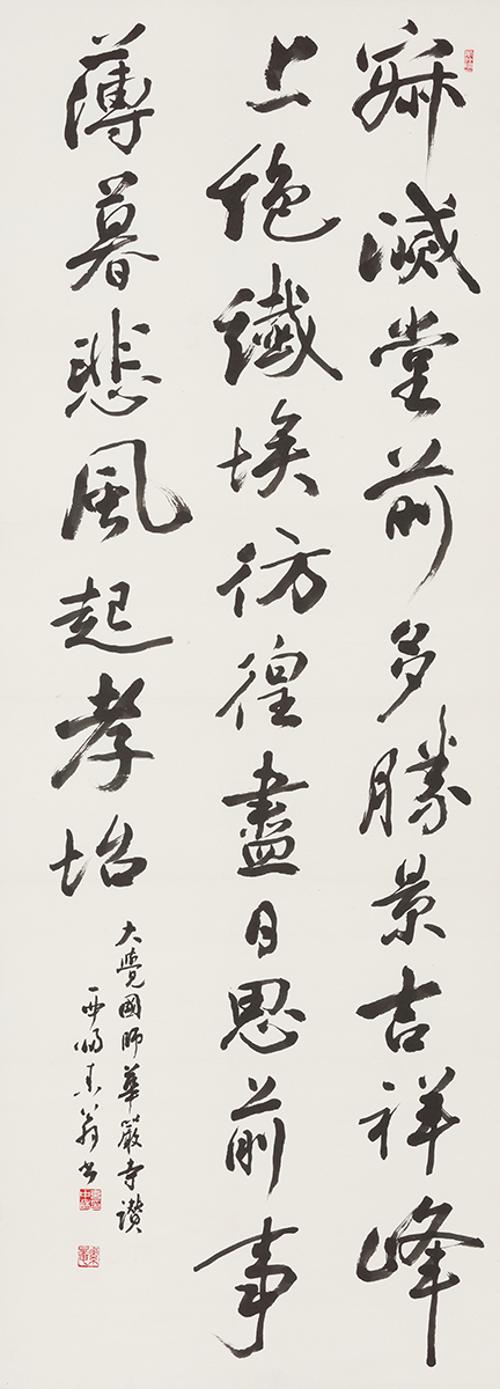 寂滅堂前多勝景吉祥峰
上絶纖埃彷徨盡日思前事
薄暮悲風起孝坮
大覺國師華嚴寺讚
翁书